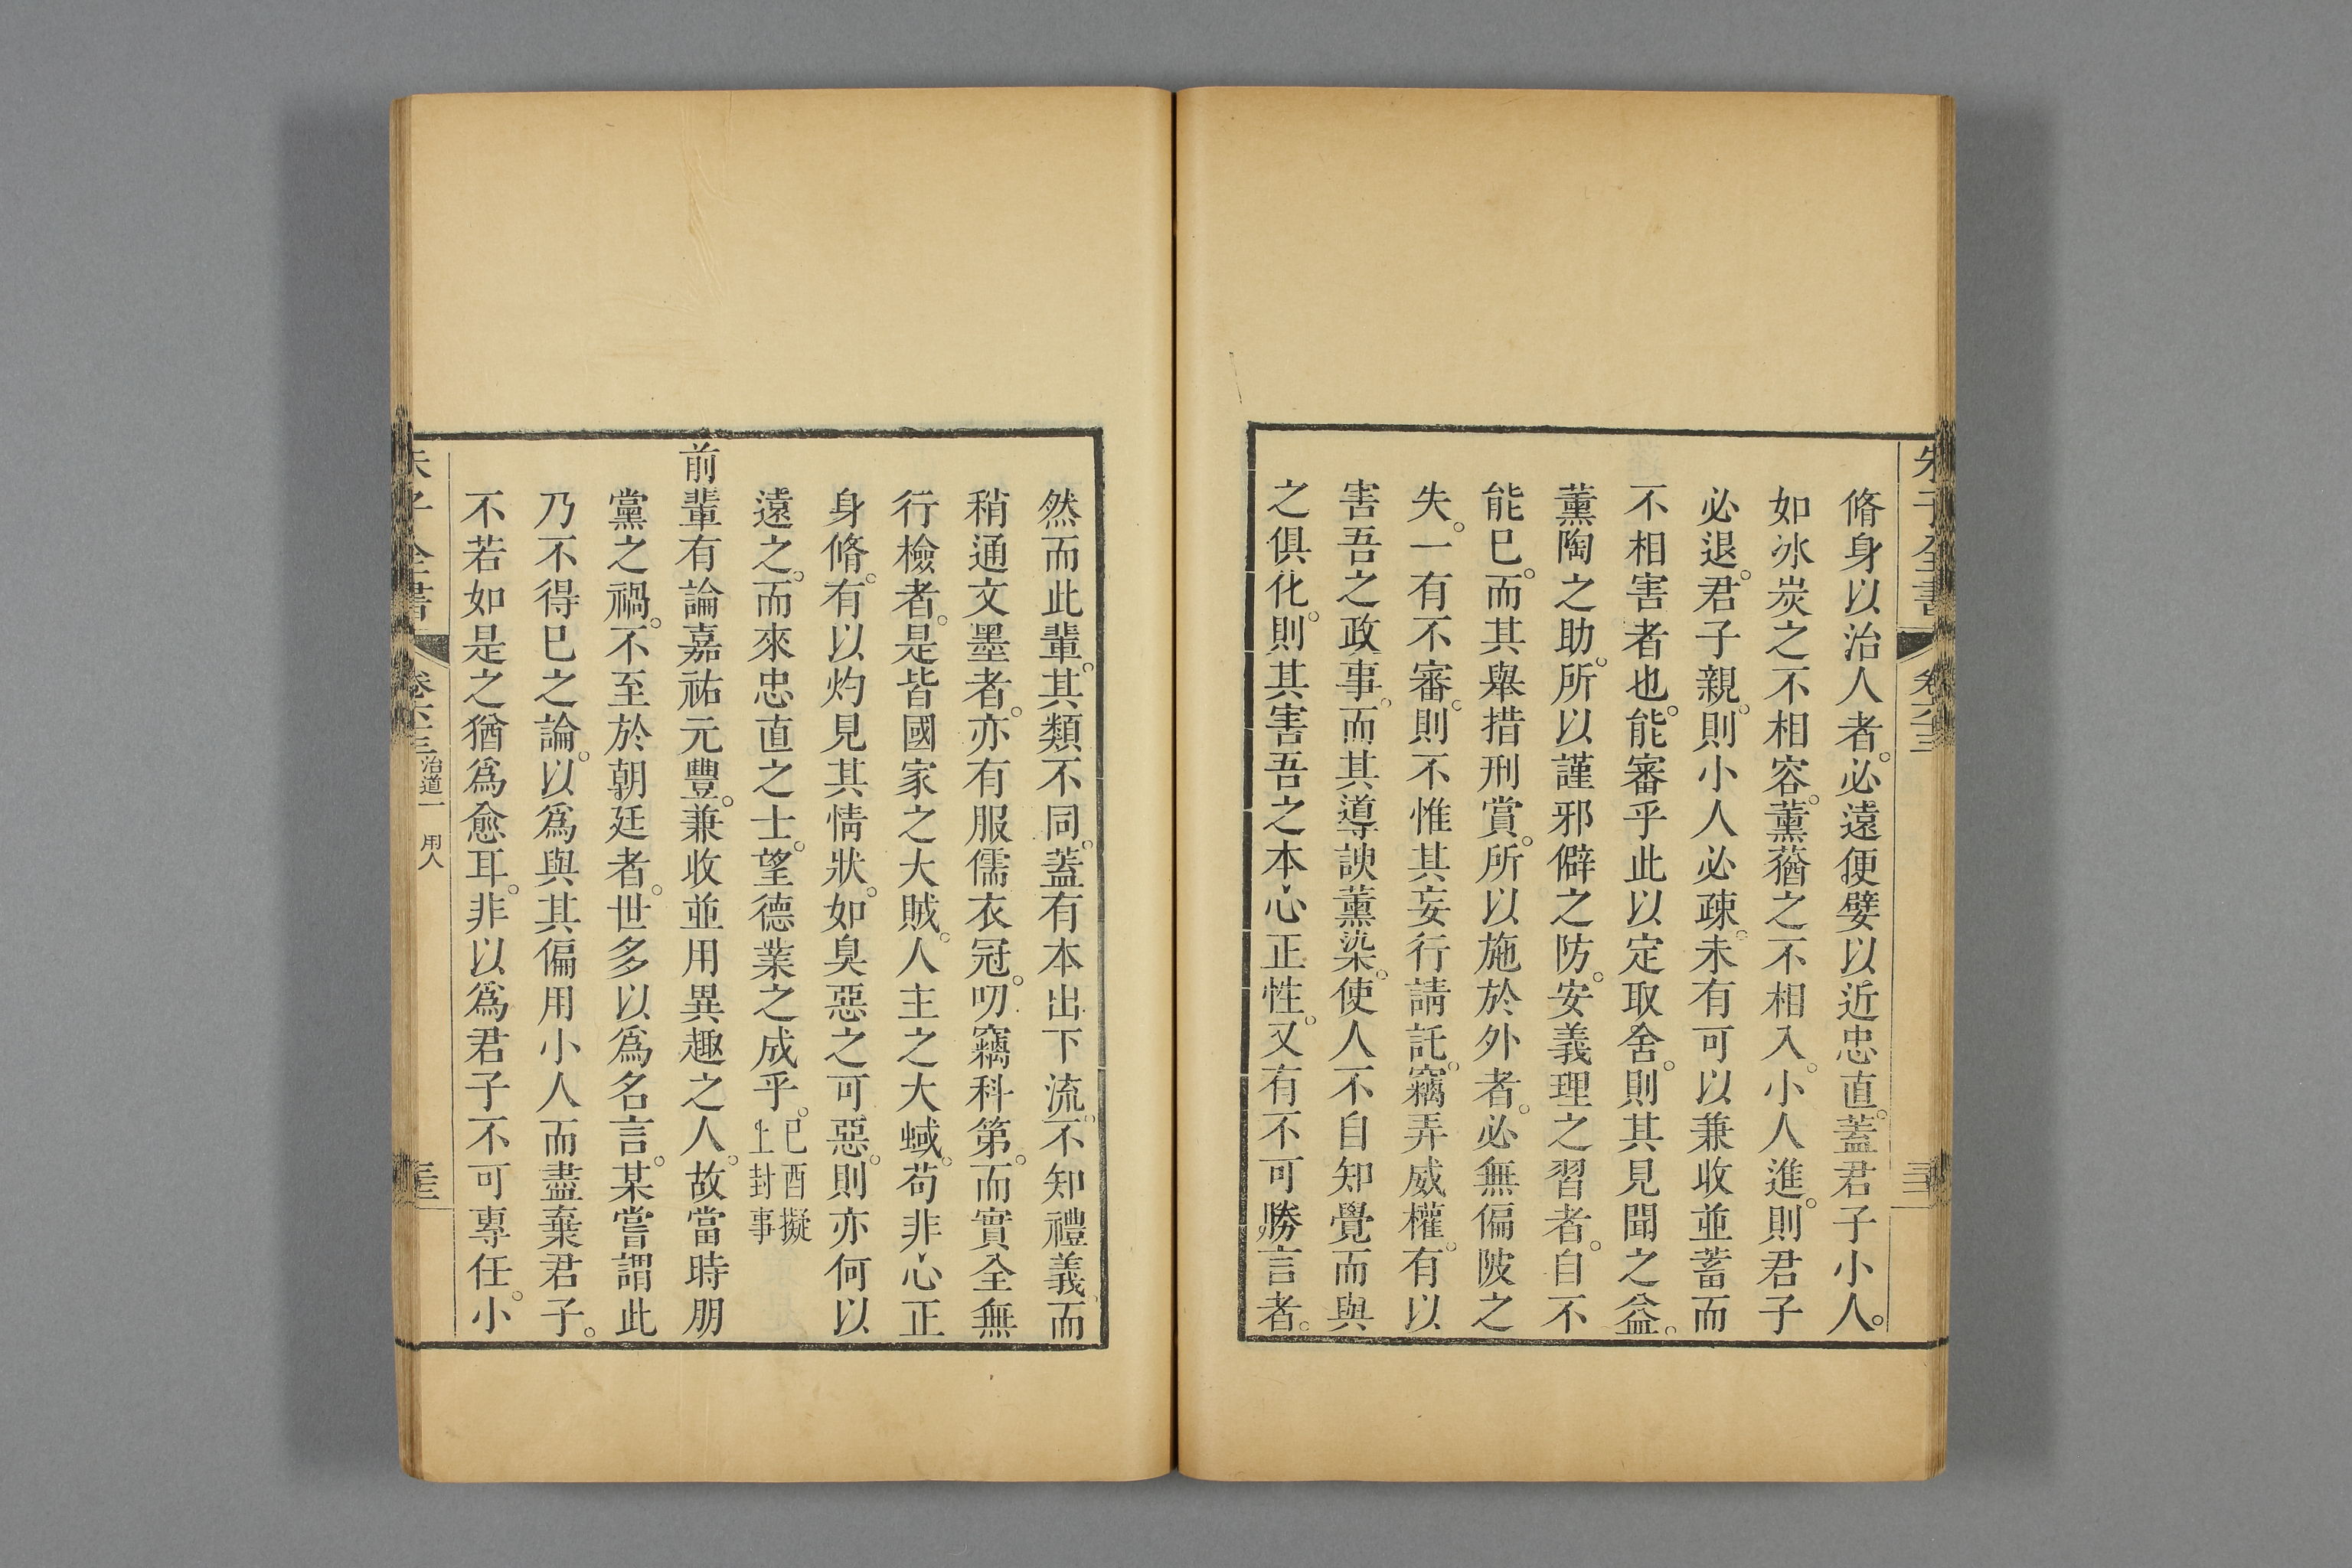 朱子全書 卷六十三
脩身以治人者。必遠便嬖以近忠直。蓋君子小人。
如冰炭之不相容。薰蕕之不相入。小人進。則君子
必退。君子親。則小人必疎。未有可以兼收並蓄而
不相害者也。能審乎此以定取舍。則其見聞之益。
薰陶之助。所以謹邪僻之防。安義理之習者。自不
能已。而其舉措刑賞。所以施於外者。必無偏陂之
失。一有不審。則不惟其妄行請託。竊弄威權。有以
害吾之政事。而其導諛薰染。使人不自知覺而與
之俱化。則其害吾之本心正性。又有不可勝言者。
然而此輩。其類不同。蓋有本出下流。不知禮義。而
稍通文墨者。亦有服儒衣冠。叨竊科第。而實全無
行檢者。是皆國家之大賊。人主之大蜮。苟非心正
身脩。有以灼見其情狀。如臭惡之可惡。則亦何以
遠之。而來忠直之士。望德業之成乎。己酉擬
上封事
前輩有論嘉祐元豐。兼收並用異趣之人。故當時朋
黨之禍。不至於朝廷者。世多以爲名言。某嘗謂此
乃不得已之論。以爲與其偏用小人而盡棄君子。
不若如是之猶爲愈耳。非以爲君子不可專任。小
朱子全書 卷六十三 治道一 用人